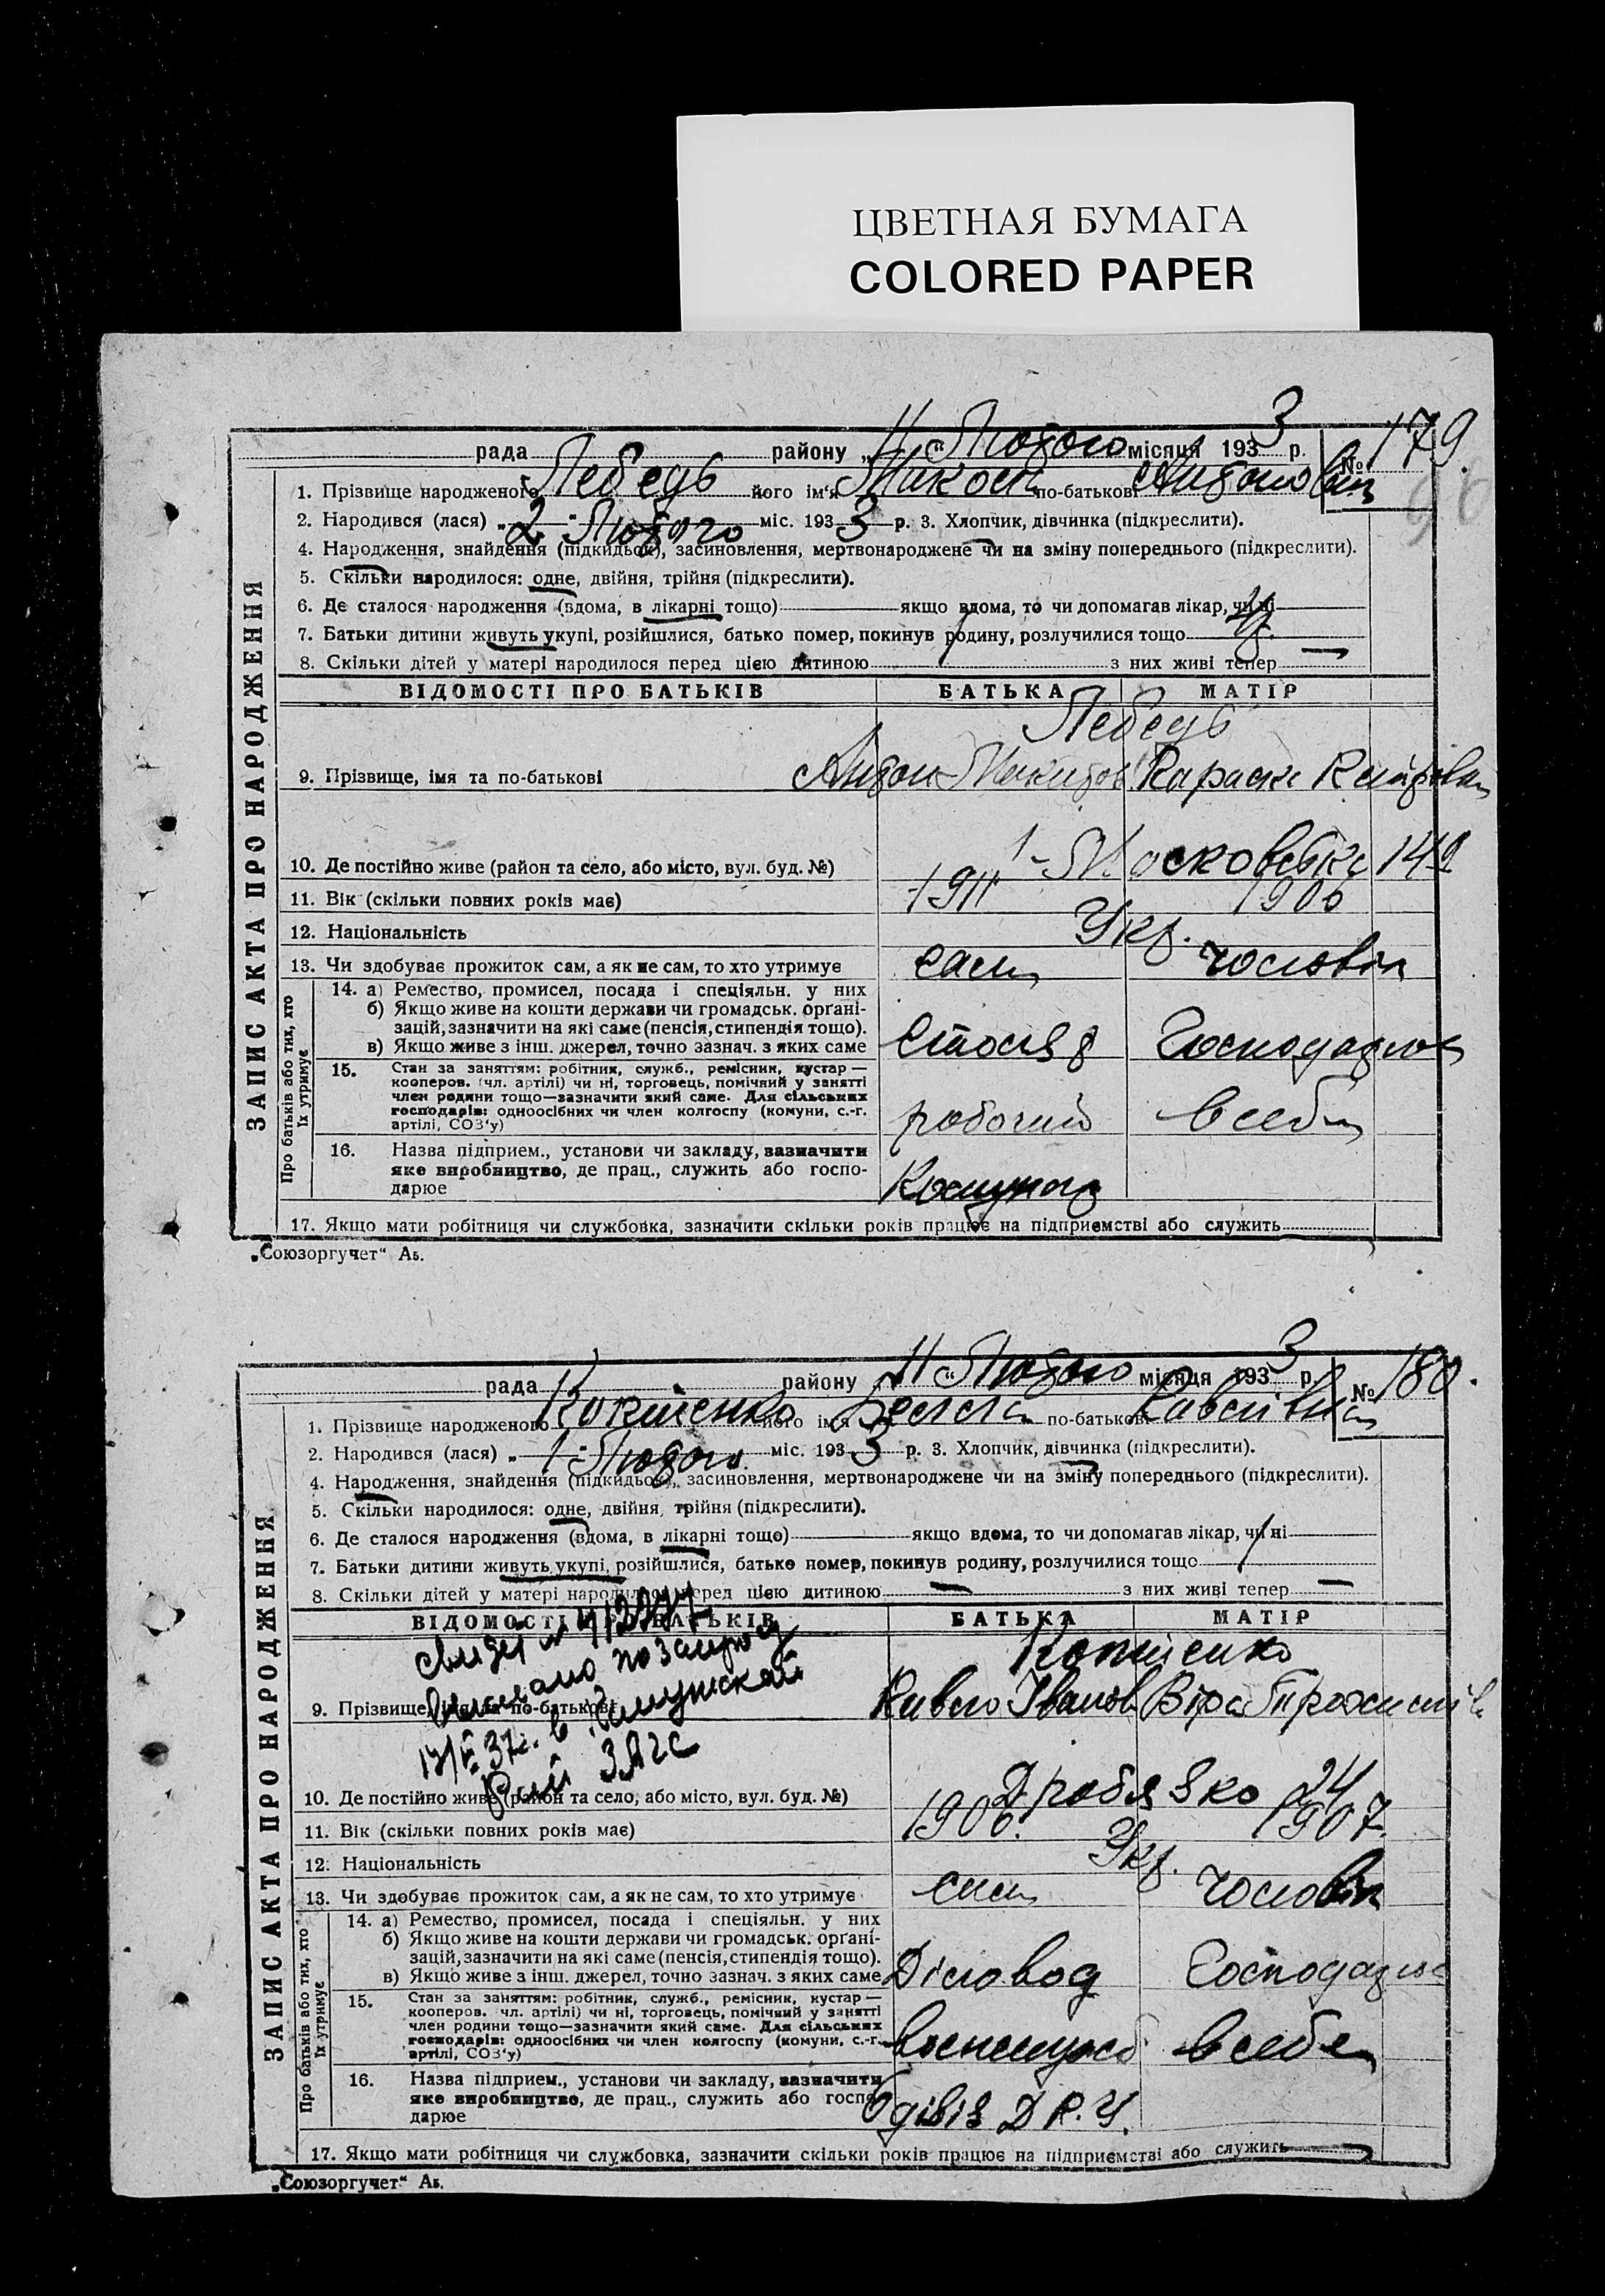 ЦВЕТНАЯ БУМАГА
COLORED PAPER
рада району „11“ Лютого місяця 1933 р. № 179.
1. Прізвище народженого Лебедь його ім'я Микола по-батькові Антонович
2. Народився (лася) „2“ Лютого міс. 1933 р. 3. Хлопчик, дівчинка (підкреслити).
4. Народження, знайдення (підкидьок), засиновлення, мертвонароджене чи на зміну попереднього (підкреслити).
5. Скільки народилося: одне, двійня, трійня (підкреслити).
6. Де сталося народження (вдома, в лікарні тощо) якщо вдома, то чи допомагав лікар, чи ні
7. Батьки дитини живуть укупі, розійшлися, батько помер, покинув родину, розлучилися тощо
8. Скільки дітей у матері народилося перед цією дитиною з них живі тепер
ЗАПИС АКТА ПРО НАРОДЖЕННЯ
ВІДОМОСТІ ПРО БАТЬКІВ БАТЬКА МАТІР
Лебедь
9. Прізвище, імя та по-батькові Антон Микитов Параска
10. Де постійно живе (район та село, або місто, вул. буд. №) Московська 149
11. Вік (скільки повних років має) 1911 1906
12. Національність Укр.
13. Чи здобуває прожиток сам, а як не сам, то хто утримує сам чоловік
Про батьків або тих, хто їх утримує
14. а) Ремество, промисел, посада і спеціяльн. у них
б) Якщо живе на кошти держави чи громадськ. орґані-
зацій, зазначити на які саме (пенсія, стипендія тощо).
в) Якщо живе з інш. джерел, точно зазнач. з яких саме Столяр Господарює
15. Стан за заняттям: робітник, служб., ремісник, кустар —
кооперов. (чл. артілі) чи ні, торговець, помічний у занятті
член родини тощо—зазначити який саме. Для сільських
господарів: одноосібних чи член колгоспу (комуни, с.-г.
артілі, СОЗ'у) робочий в себе
16. Назва підприєм., установи чи закладу, зазначити
яке виробництво, де прац., служить або госпо-
дарює
17. Якщо мати робітниця чи службовка, зазначити скільки років працює на підприємстві або служить
„Союзоргучет“ Аь.
рада району „11“ Лютого місяця 1933 р. № 180.
1. Прізвище народженого його ім'я по-батькові Павлівна
2. Народився (лася) „1“ Лютого міс. 1933 р. 3. Хлопчик, дівчинка (підкреслити).
4. Народження, знайдення (підкидьок), засиновлення, мертвонароджене чи на зміну попереднього (підкреслити).
5. Скільки народилося: одне, двійня, трійня (підкреслити).
6. Де сталося народження (вдома, в лікарні тощо) якщо вдома, то чи допомагав лікар, чи ні
7. Батьки дитини живуть укупі, розійшлися, батько помер, покинув родину, розлучилися тощо
8. Скільки дітей у матері народилося перед цією дитиною з них живі тепер
ЗАПИС АКТА ПРО НАРОДЖЕННЯ
ВІДОМОСТІ ПРО БАТЬКІВ БАТЬКА МАТІР
9. Прізвище, імя та по-батькові Павло Іванов Віра
ЗАГС
10. Де постійно живе (район та село, або місто, вул. буд. №) Дробязко 24
11. Вік (скільки повних років має) 1906. 1907.
12. Національність Укр.
13. Чи здобуває прожиток сам, а як не сам, то хто утримує сам чоловік
Про батьків або тих, хто їх утримує
14. а) Ремество, промисел, посада і спеціяльн. у них
б) Якщо живе на кошти держави чи громадськ. орґані-
зацій, зазначити на які саме (пенсія, стипендія тощо).
в) Якщо живе з інш. джерел, точно зазнач. з яких саме Діловод Господарює
15. Стан за заняттям: робітник, служб., ремісник, кустар —
кооперов. (чл. артілі) чи ні, торговець, помічний у занятті
член родини тощо—зазначити який саме. Для сільських
господарів: одноосібних чи член колгоспу (комуни, с.-г.
артілі, СОЗ'у) в себе
16. Назва підприєм., установи чи закладу, зазначити
яке виробництво, де прац., служить або госпо-
дарює
17. Якщо мати робітниця чи службовка, зазначити скільки років працює на підприємстві або служить
„Союзоргучет“ Аь.